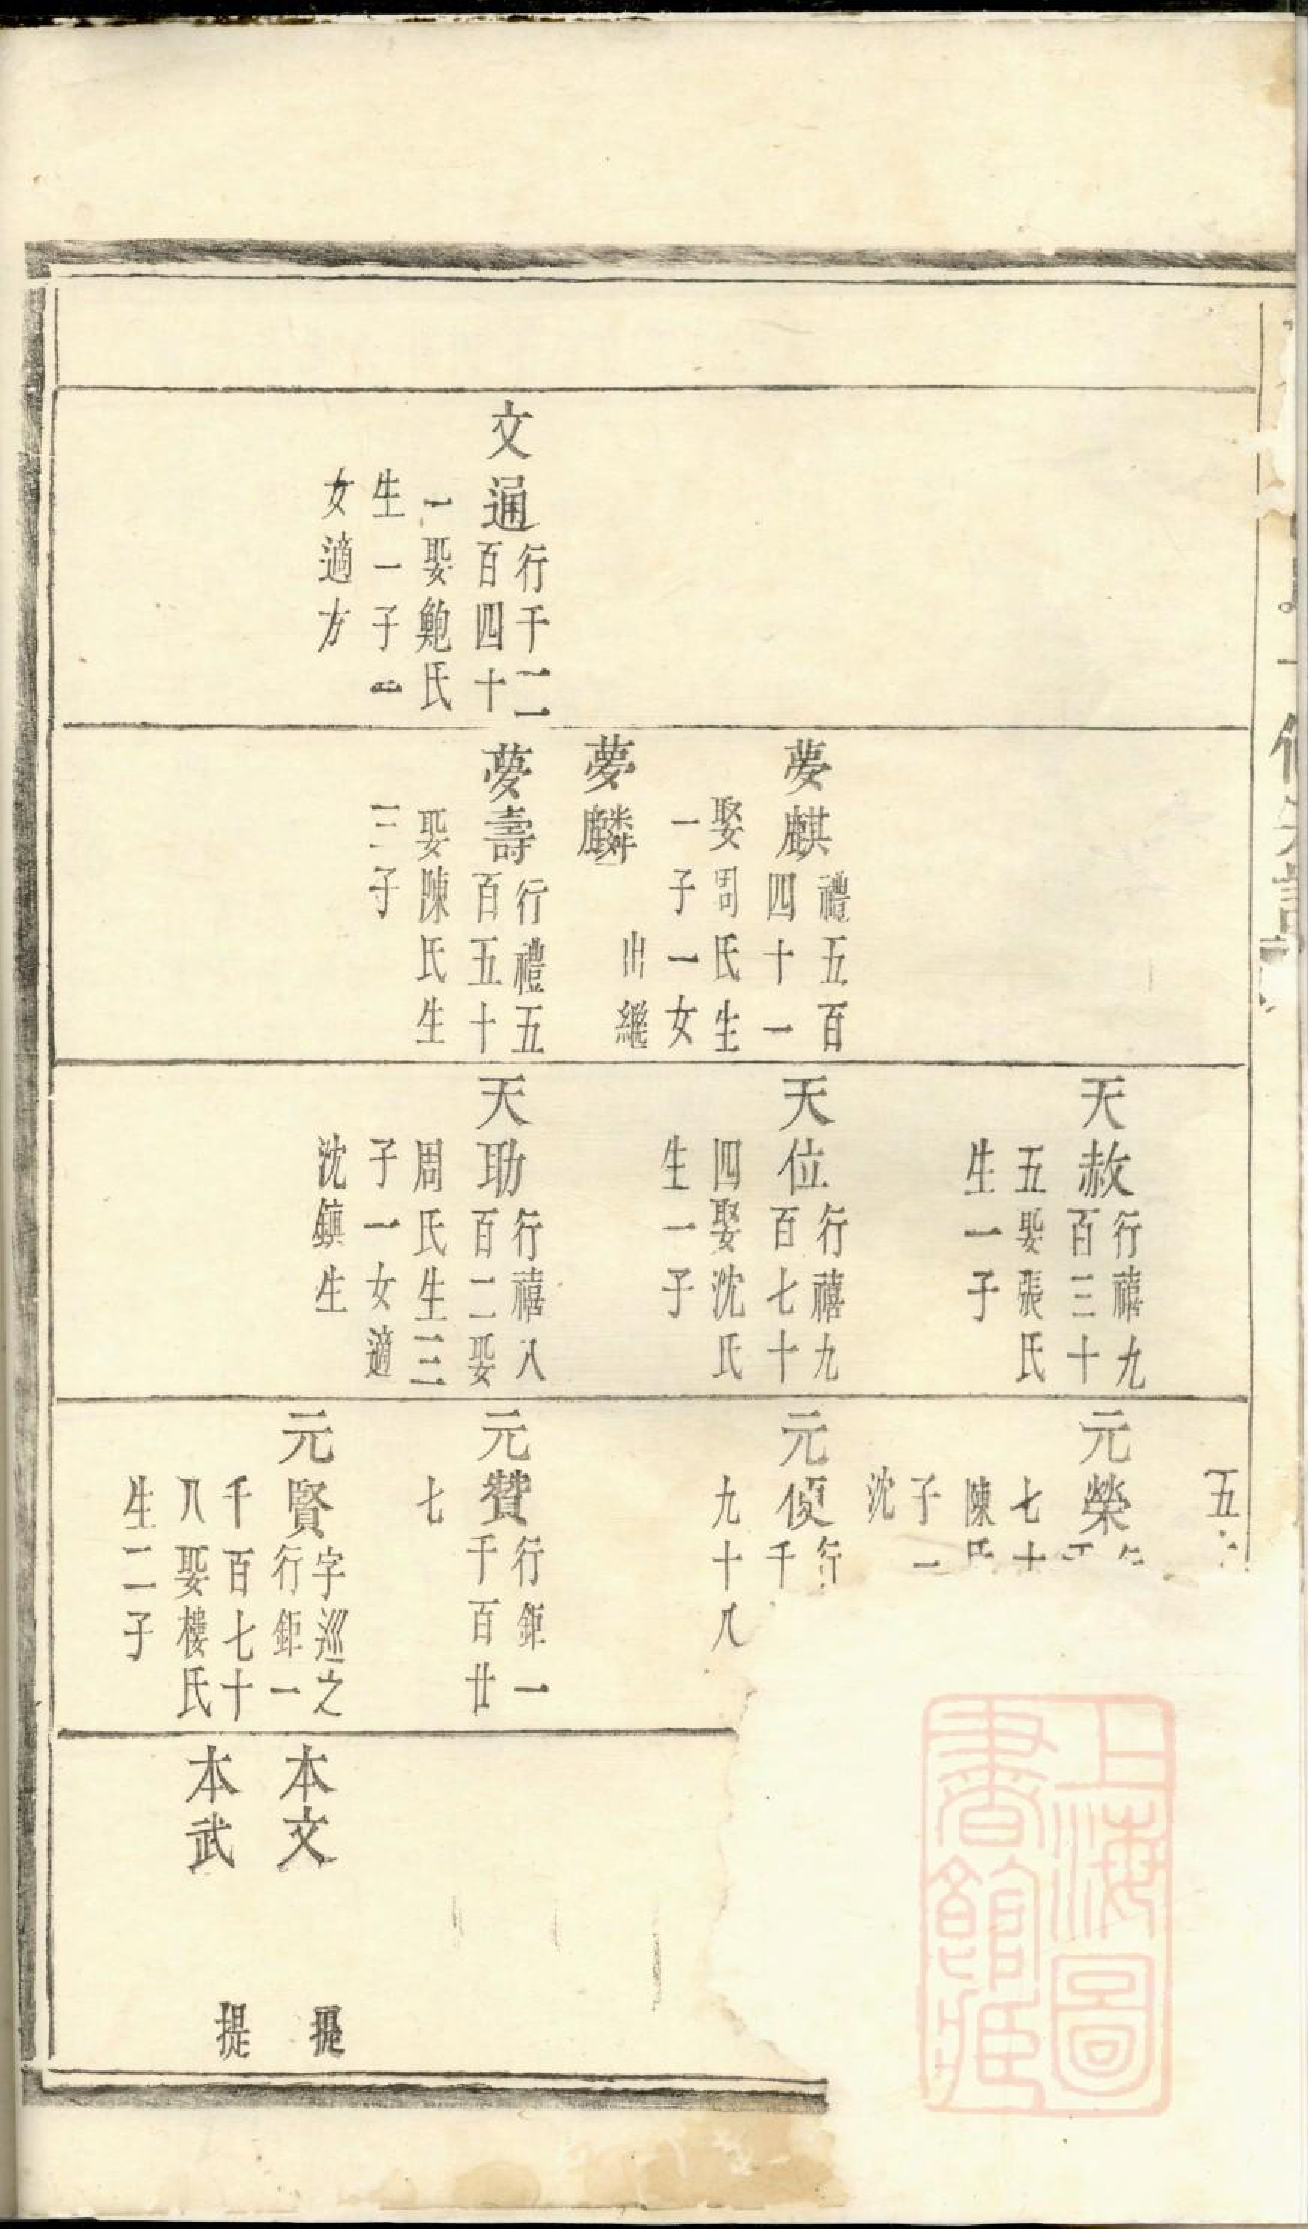 文通
行千二
百四十
一娶鮑氏
生一子一
女適方
夢麒
禮五百
四十一
娶周氏生
一子一女
夢麟
出繼
夢壽
行禮五
百五十
娶陳氏生
三子
天赦
行禧九
百三十
五娶張氏
生一子
天位
行禧九
百七十
四娶沈氏
生一子
天助
行禧八
百二娶
周氏生三
子一女適
沈鎮生
五
元榮
七十
陳氏
子一
沈
元傎
行
千
九十八
元贊
行鉅一
千百廿
七
元賢
字巡之
行鉅一
千百七十
八娶樓氏
生二子
本文
提
本武
提
上海圖
書館藏